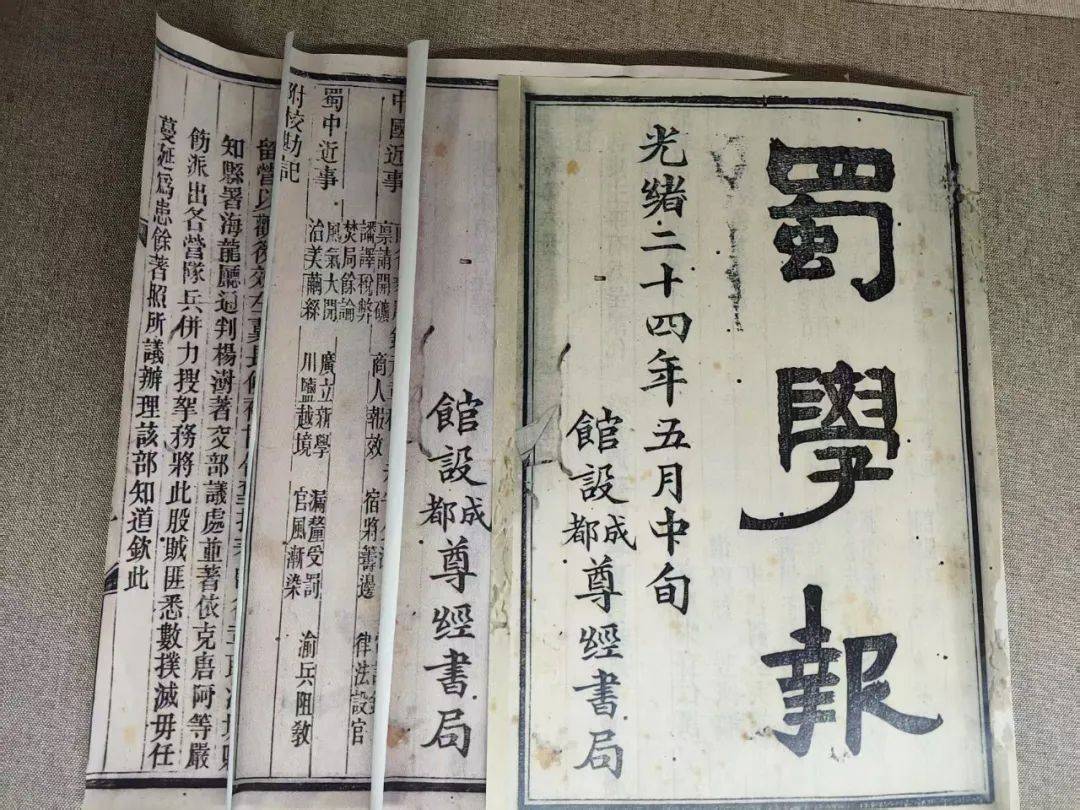 蜀學報
光緒二十四年五月中旬
館設成都尊經書局
館設成都尊經書局
中國近事
稟請開礦
商人報效
宿將籌邊
譸譯稅弊
律法設官
蜀中近事
焚局餘論
風氣大開
廣立新學
漏釐受罰
渝兵阻教
治美繭繅
川鹽越境
官風漸染
附校勘記
留營以觀後效
知縣署海龍廳通判楊澍著交部議處並著依克唐阿等嚴
飭派出各營隊兵併力搜拏務將此股賊匪悉數撲滅毋任
蔓延爲患餘著照所議辦理該部知道欽此